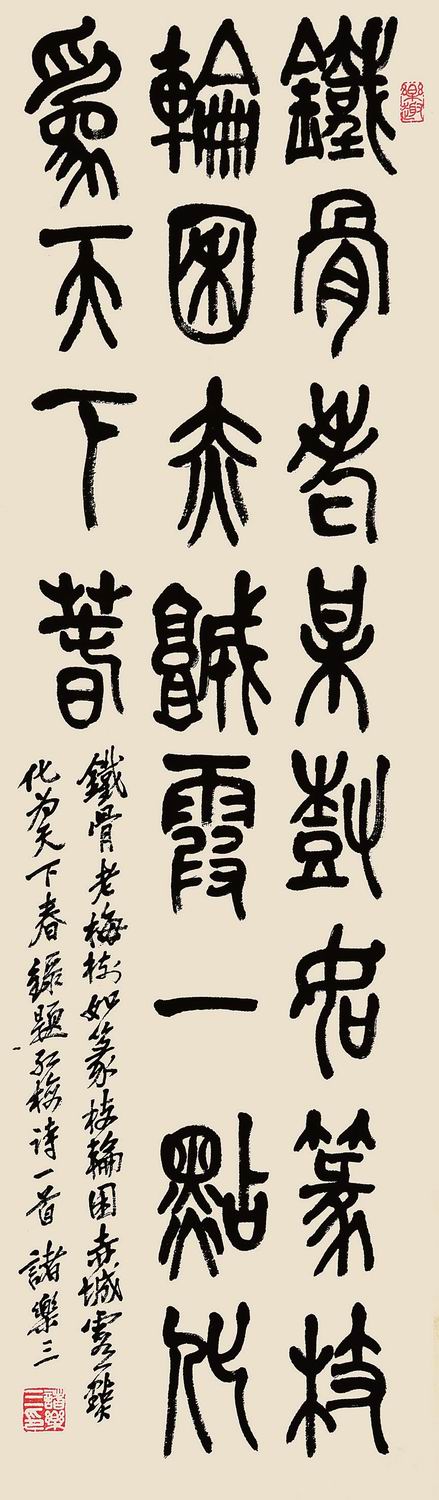 鐵骨老某樹如篆枝
輪囷赤城霞一點化
爲天下春
鐵骨老梅樹如篆枝輪囷赤城霞一點
化为天下春 錄題紅梅詩一首 諸樂三
諸樂三印